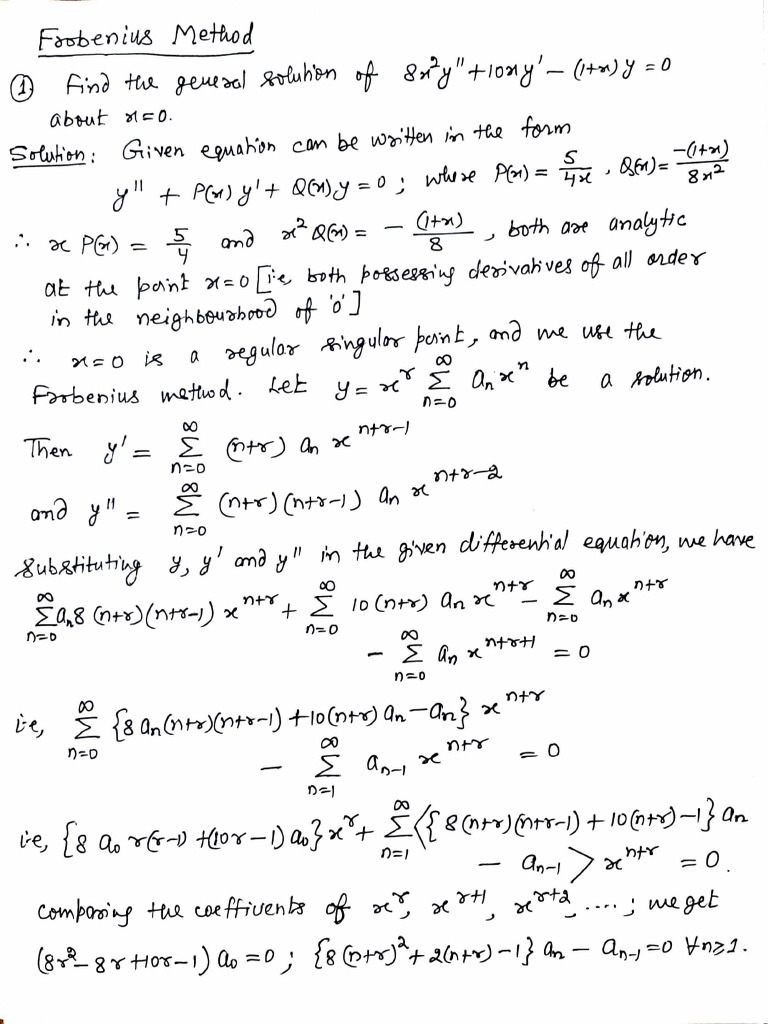 Frobenius Method
① Find the general solution of 8x²y" + 10xy' − (1+x) y = 0
about x=0.
Solution: Given equation can be written in the form
y" + P(x) y' + Q(x) y = 0 ; where P(x) = 5/4x , Q(x) = −(1+x)/8x²
∴ x P(x) = 5/4 and x² Q(x) = − (1+x)/8 , both are analytic
at the point x=0 [i.e, both possessing derivatives of all order
in the neighbourhood of '0']
∴ x=0 is a regular singular point, and we use the
Frobenius method. Let y = x^r ∑_{n=0}^{∞} a_n x^n be a solution.
Then y' = ∑_{n=0}^{∞} (n+r) a_n x^{n+r-1}
and y" = ∑_{n=0}^{∞} (n+r)(n+r-1) a_n x^{n+r-2}
Substituting y, y' and y" in the given differential equation, we have
∑_{n=0}^{∞} a_n 8 (n+r)(n+r-1) x^{n+r} + ∑_{n=0}^{∞} 10 (n+r) a_n x^{n+r} − ∑_{n=0}^{∞} a_n x^{n+r}
− ∑_{n=0}^{∞} a_n x^{n+r+1} = 0
i.e, ∑_{n=0}^{∞} {8 a_n (n+r)(n+r-1) + 10(n+r) a_n − a_n} x^{n+r}
− ∑_{n=1}^{∞} a_{n-1} x^{n+r} = 0
i.e, {8 a_0 r(r-1) + (10r−1) a_0} x^r + ∑_{n=1}^{∞} ⟨{8(n+r)(n+r-1) + 10(n+r)−1} a_n
− a_{n-1} ⟩ x^{n+r} = 0.
Comparing the coefficients of x^r, x^{r+1}, x^{r+2}, .... ; we get
(8r² − 8r + 10r − 1) a_0 = 0 ; {8(n+r)² + 2(n+r) − 1} a_n − a_{n-1} = 0 ∀ n≥1.